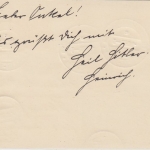 Lieber Onkel!
Es grüßt Dich mit
Heil Hitler
Heinrich.